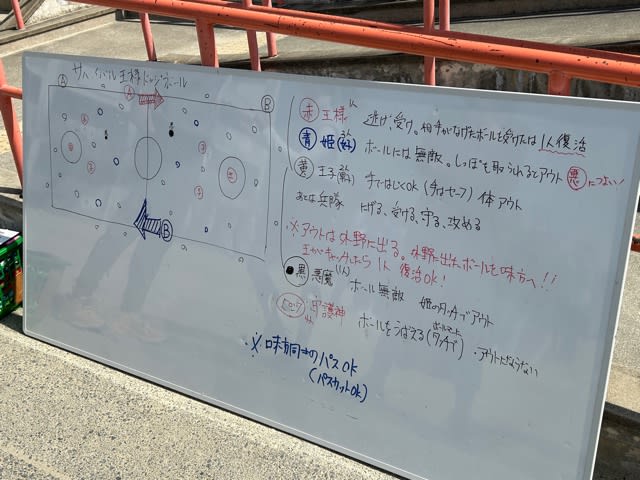 サバイバル王様ドッジボール
A
A
B
B
赤 王様 1人 逃げ、受け。相手がなげたボールを受けたら1人復活
青 姫 ボールには無敵。しっぽを取られるとアウト 悪につよい!
黄 王子 手ではじくOK (手はセーフ) 体アウト
あとは兵隊 にげる、受ける、守る、攻める
※アウトは外野に出る。外野に出たボールを味方へ!!
王がキャッチしたら1人復活OK!
黒 悪魔 (1人) ボール無敵 姫のタッチでアウト
ピンク 守護神 1人 ボールをうばえる ・アウトにならない
※味方同士のパスOK
(パスカットOK)